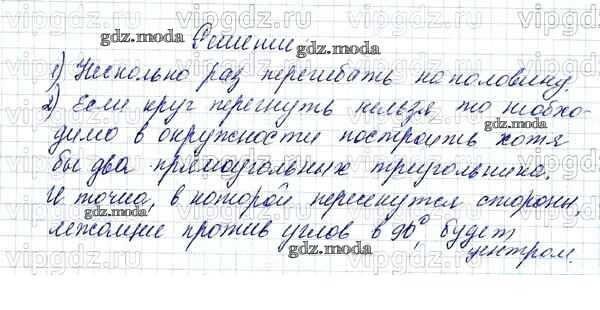 Решении
1) Несколько раз перегибать на половину.
2) Если круг перегнуть нельзя то необхо-
димо в окружности построить хотя
бы два прямоугольных треугольника.
И точка, в которой пересекутся стороны,
лежащие против углов в 90°, будет
центром.
vipgdz.ru
gdz.moda